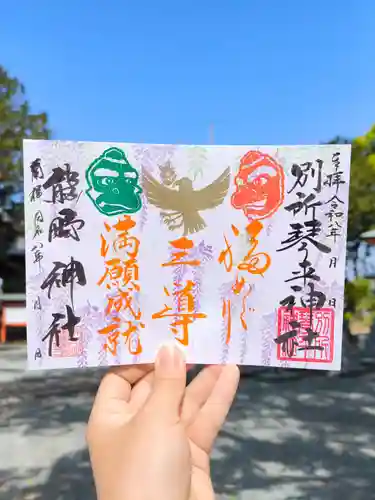 奉拝 令和八年 月 日
別所琴平神社
福めぐり
三導
満願成就
熊野神社
奉拝 令和八年 月 日